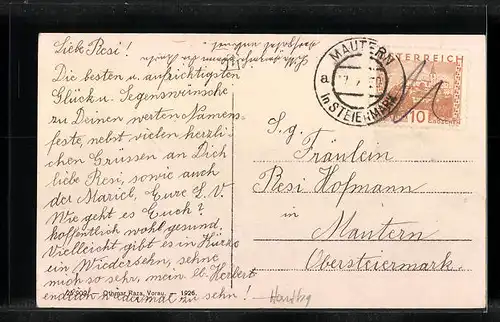 Liebe Resi!
Die besten u. aufrichtigsten
Glück u. Segenswünsche
zu Deinen werten Namens-
feste, nebst vielen herzli-
chen Grüssen an Dich
liebe Resi, sowie auch
der Mariel, Eure L. V.
Wie geht es Euch?
hoffentlich wohl gesund.
Vielleicht gibt es in Kürze
ein Wiedersehn, sehne
mich so sehr, mein lb. Herbert
endlich wiedermal zu sehn!
MAUTERN
a
in STEIERMARK
ÖSTERREICH
10
GROSCHEN
S. g.
Fräulein
Resi Hofmann
in
Mautern
Obersteiermark.
Othmar Raza, Vorau. — 1926.